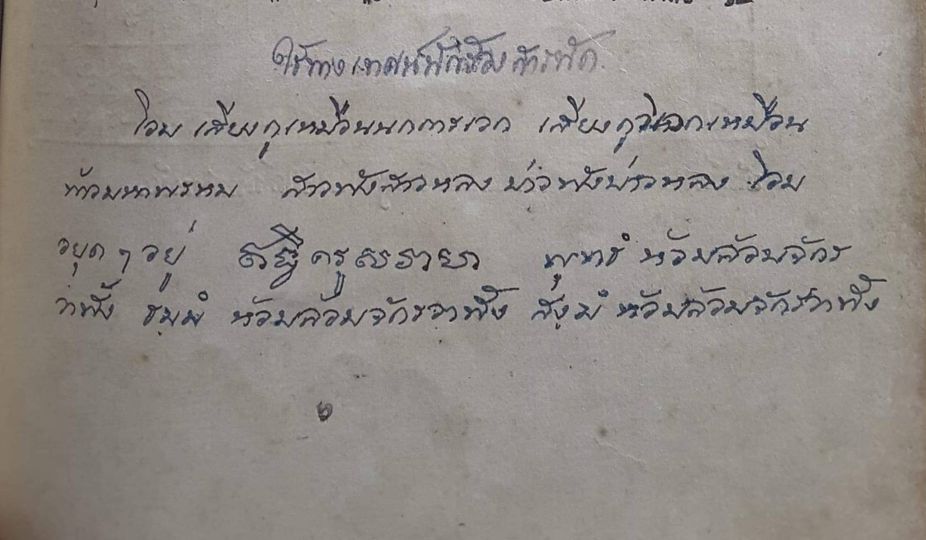 ใช้ทางเทศน์
โอม เสียงกูเหมือนนกการเวก เสียงกูวิเวกเหมือน
ท้าวมหาพรหม สาวฟังสาวหลง บ่าวฟังบ่าวหลง โอม
อยุด ๆ อยู่ ครู พุทธํ ห้อมล้อมจักร
วาฬั้ง ธมมํ ห้อมล้อมจักรวาฬั้ง สํงฆํ ห้อมล้อมจักรวาฬั้ง